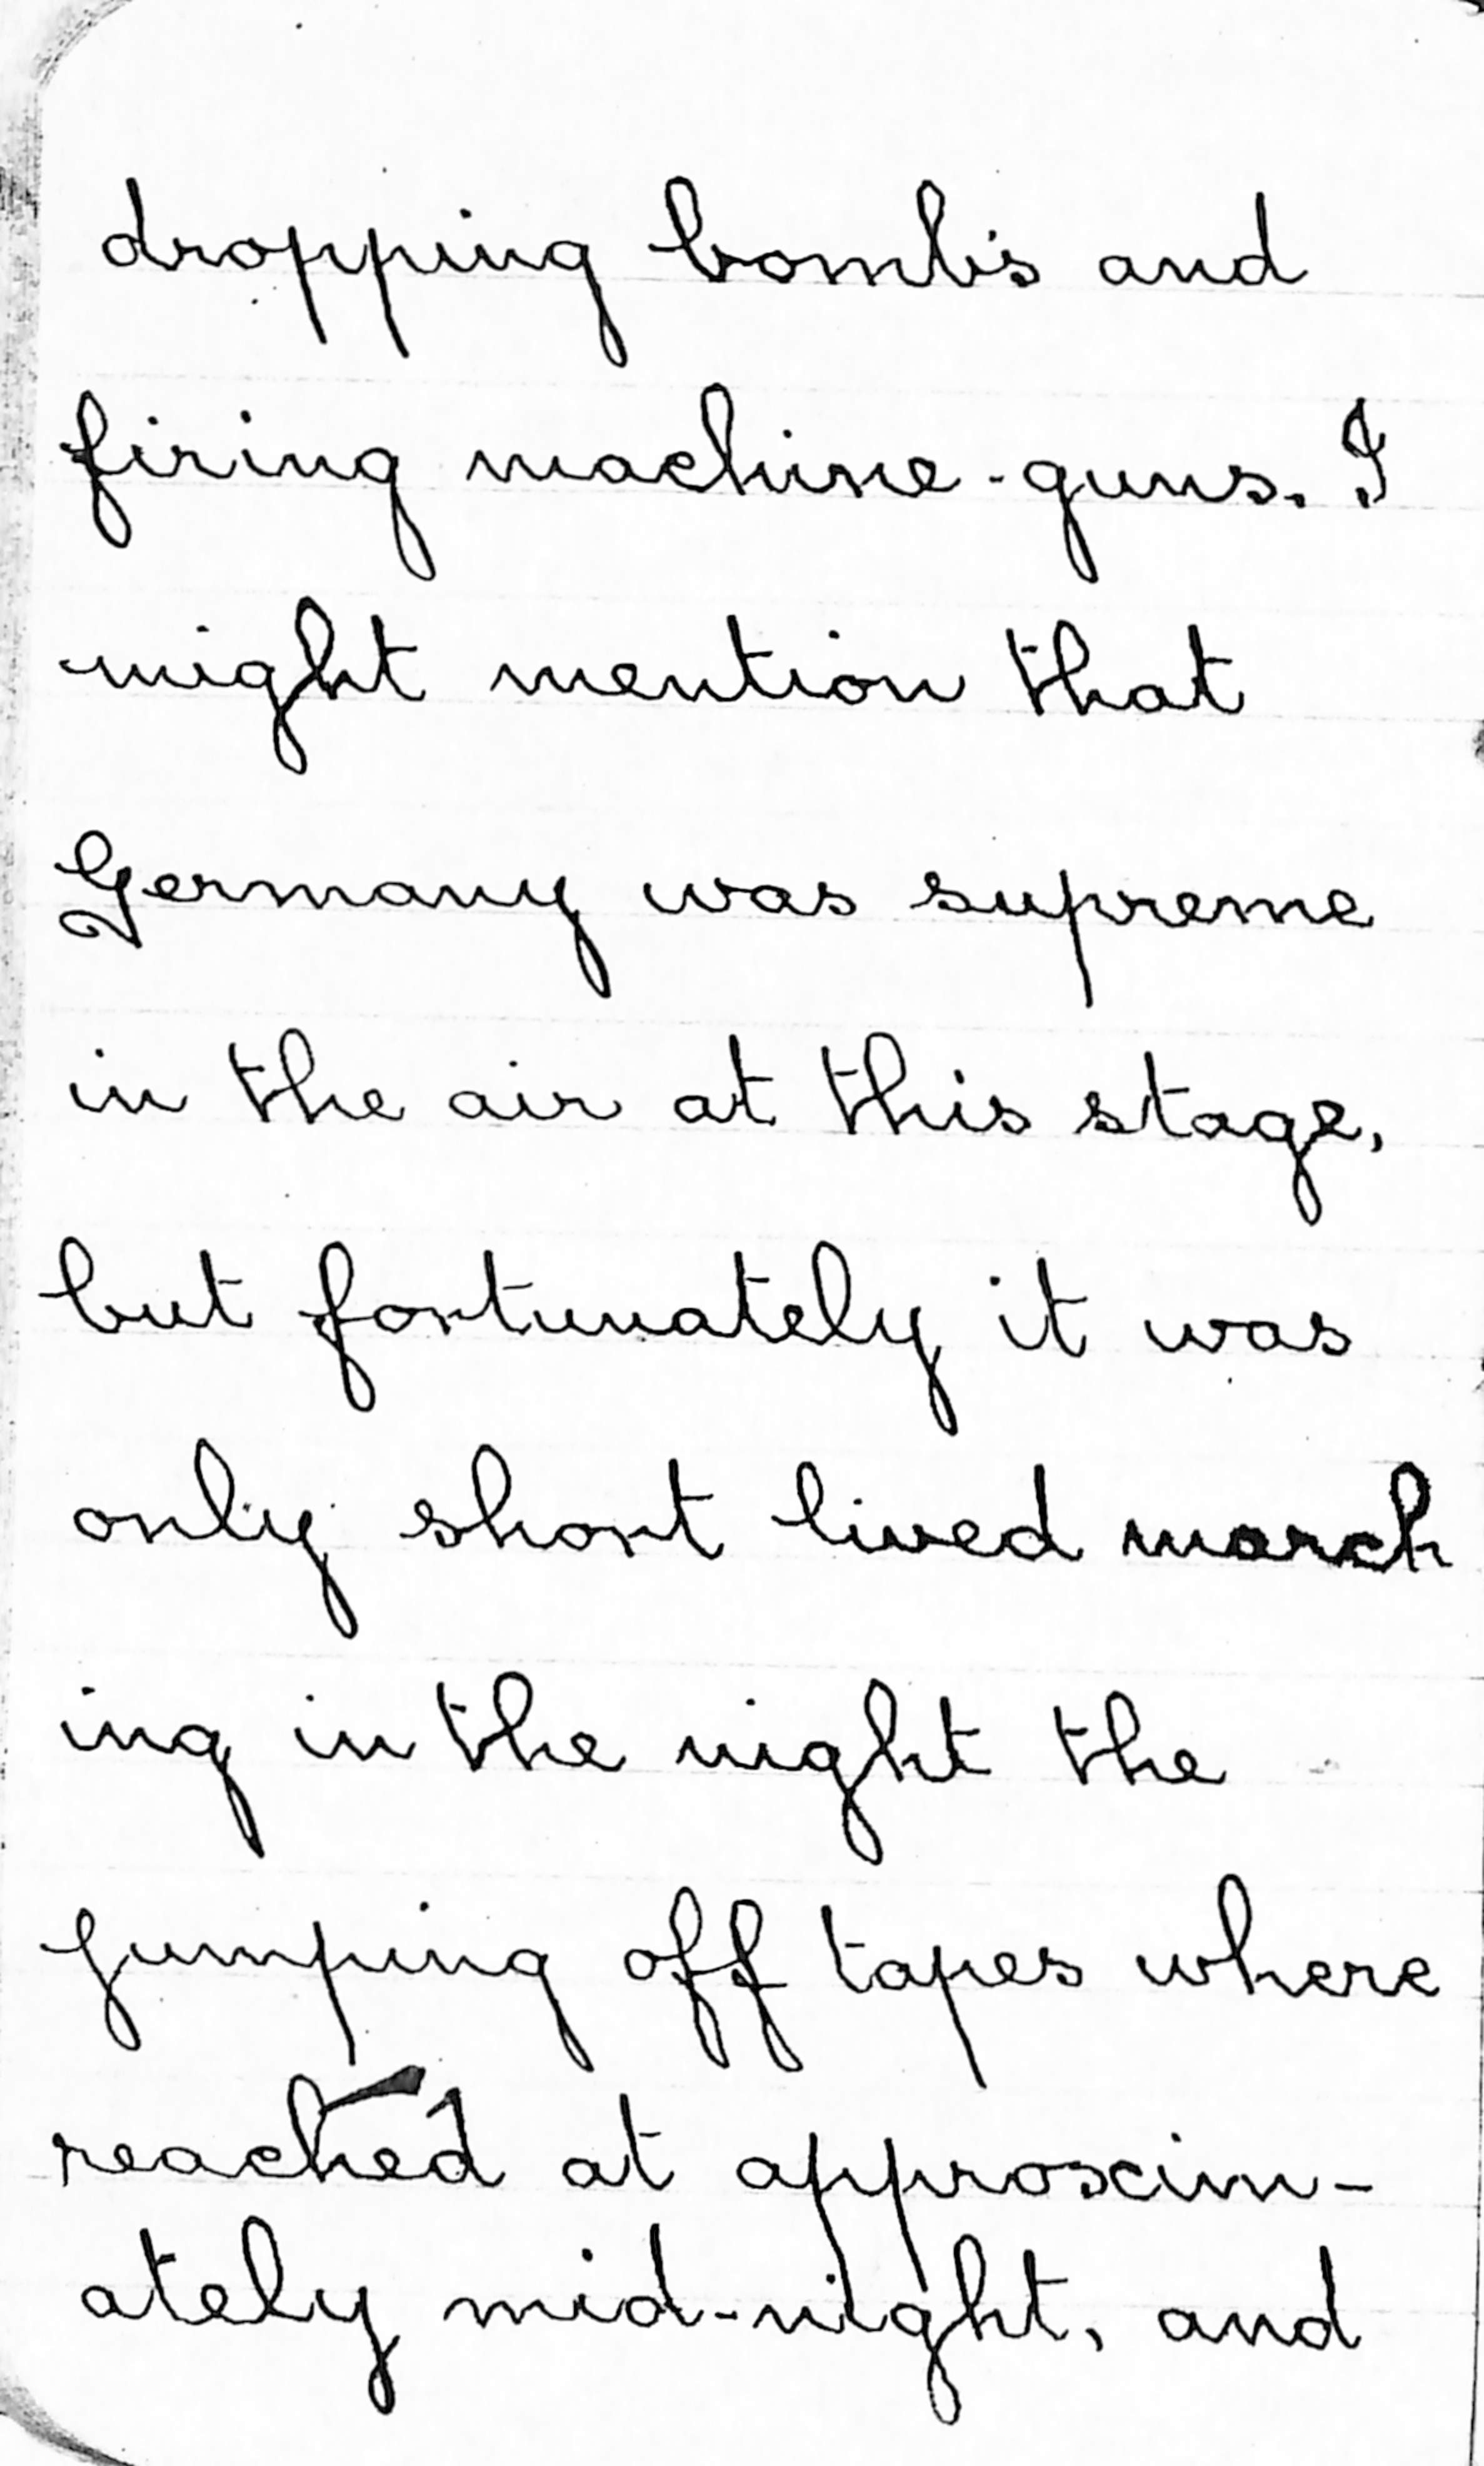 dropping bombs and
firing machine-guns. I
might mention that
Germany was supreme
in the air at this stage,
but fortunately it was
only short lived march
ing in the night the
jumping off tapes where
reached at approxim-
ately mid-night, and